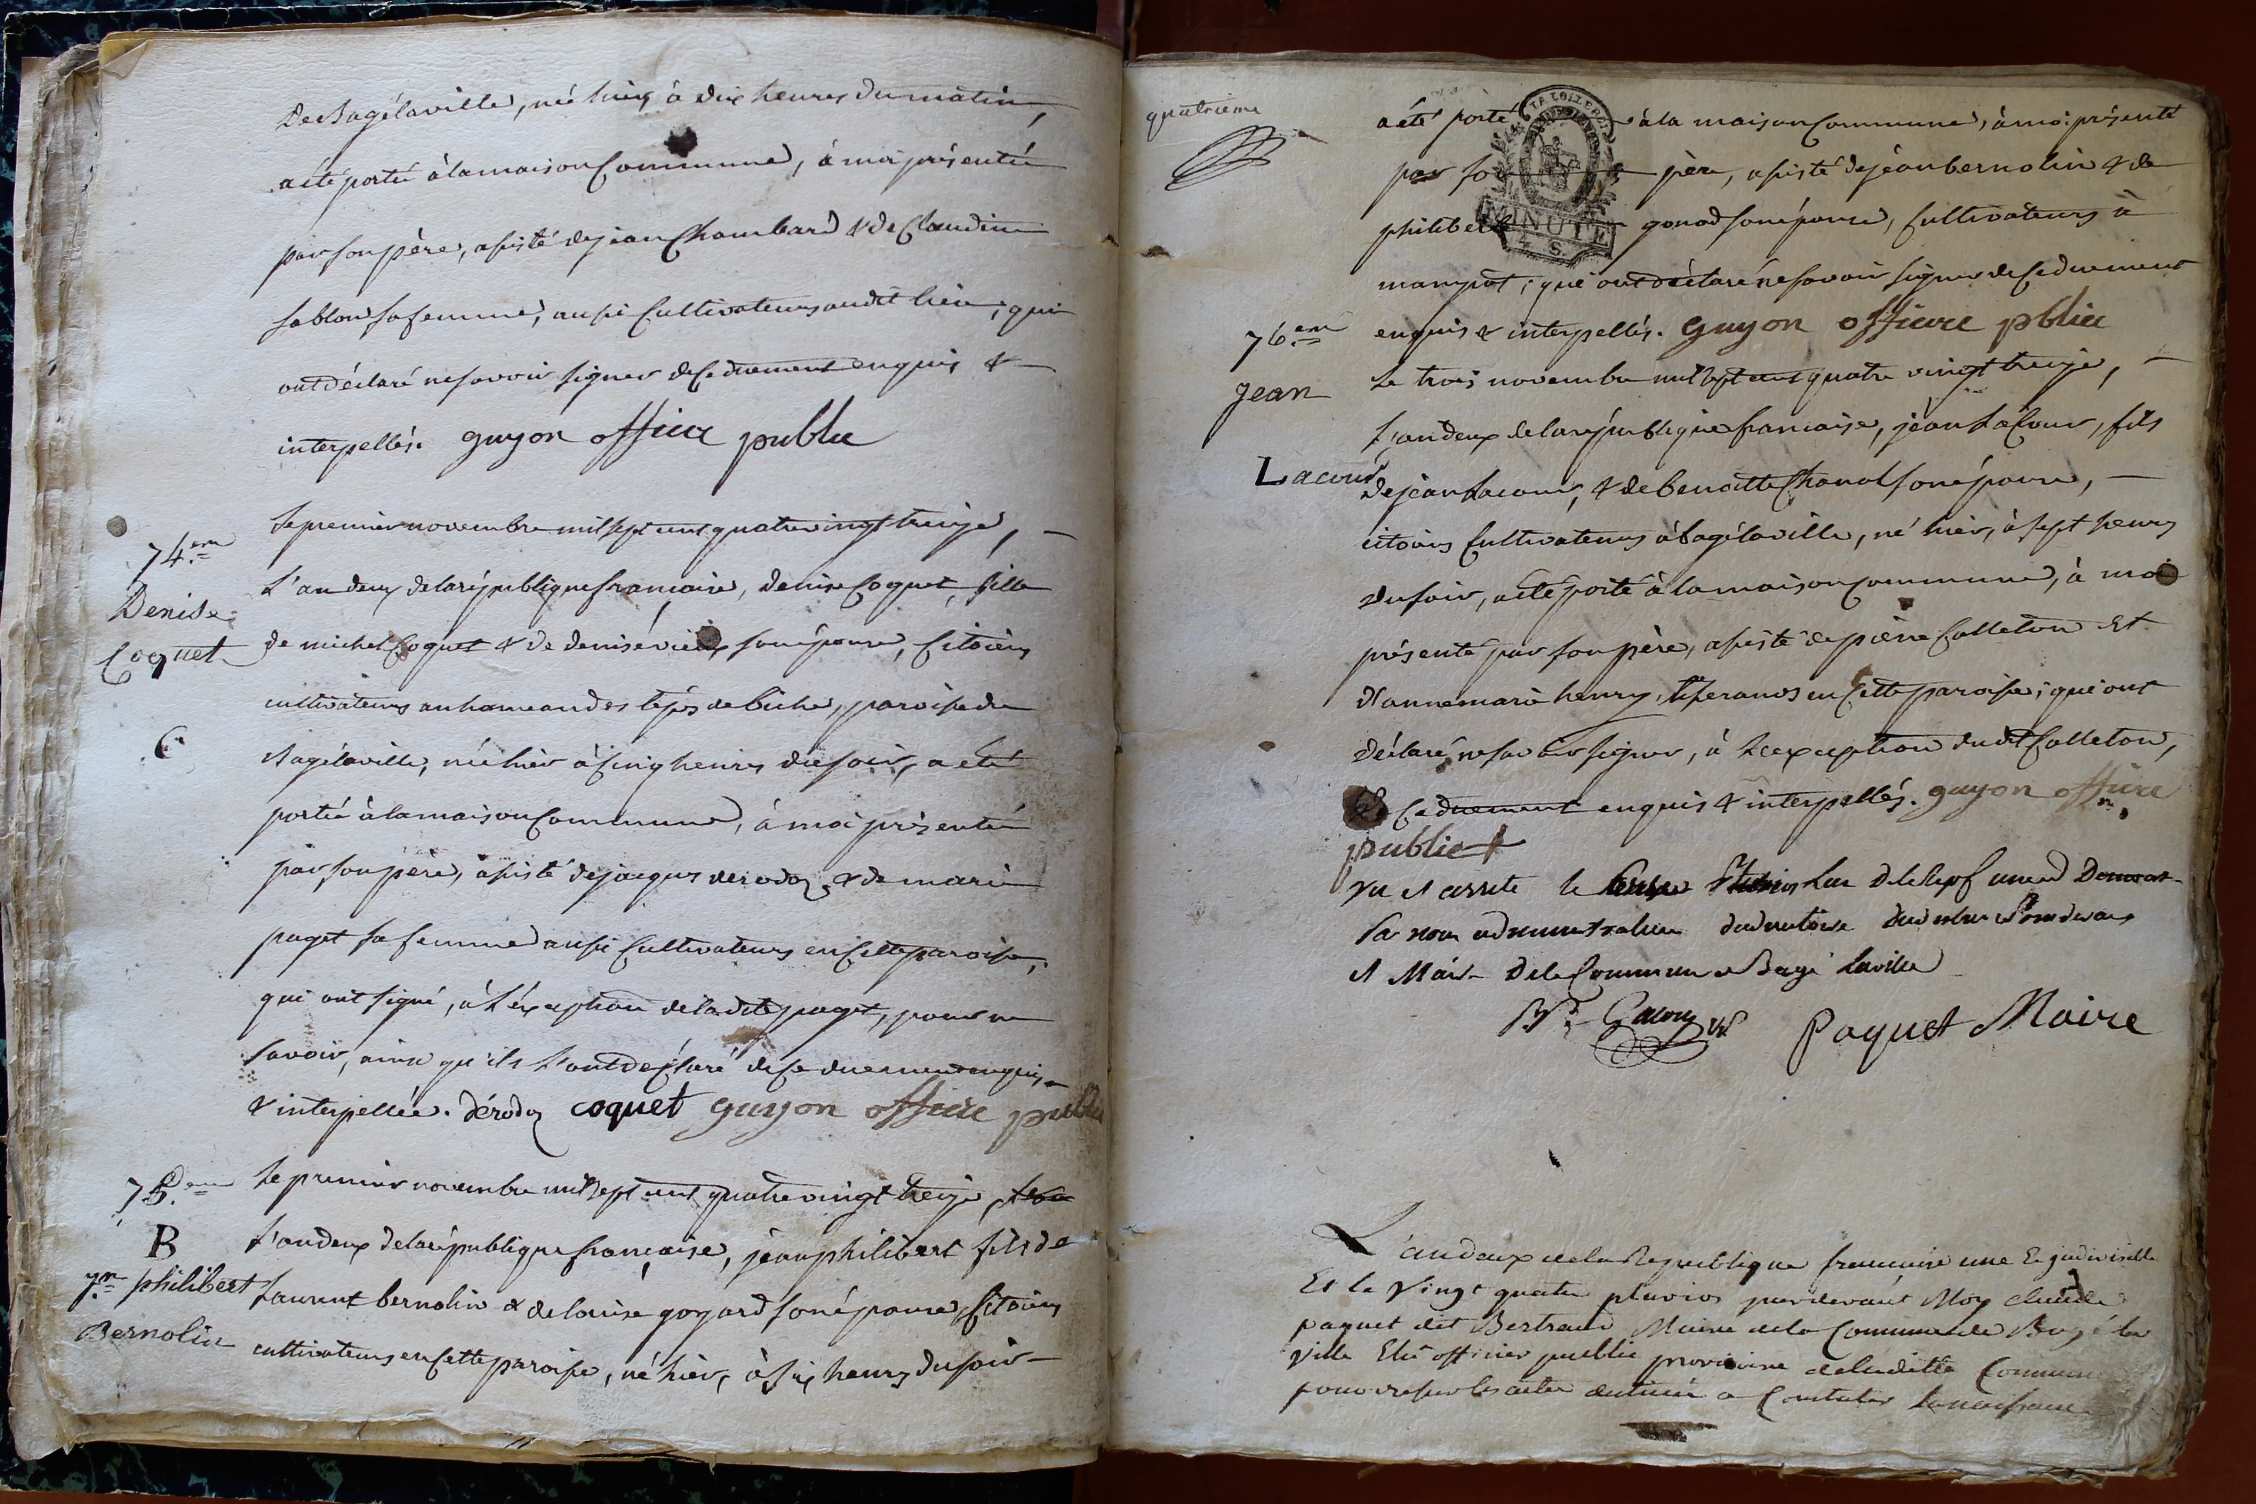 De Bagélaville, née hier, à dix heures du matin,
a été portée à la maison Commune, à moi présentée
par son père, assisté de jean Chambard & de Claudine
sablon sa femme, aussi Cultivateurs audit lieu; qui
ont déclaré ne savoir signer de Ce duement enquis &
interpellés. guyon officier public
74.em
Denise
Coquet
C
Le premier novembre mil sept cent quatre vingt treize,
L'an deux de la république française, denise Coquet, fille
de michel Coquet & de denise son épouse, Citoiens
cultivateurs au hameau des de biche, paroisse de
Bagélaville, née hier à Cinq heures du soir, a eté
portée à la maison Commune, à moi présentée
par son père, assisté de jacques derodoz & de marie
paget sa femme aussi Cultivateurs en Cette paroisse,
qui ont signé, à L'exception de ladite paget, pour ne
savoir, ainsi qu'ils L'ont déclaré de Ce duement enquis
& interpellée. dérodoz coquet guyon officier public
75.eme
B
jn. philibert
Bernolin
Le premier novembre mil sept cent quatre vingt treize,
L'an deux de la république française, jean philibert fils de
Laurent bernolin & de louise goyard son épouse, Citoiens
cultivateurs en Cette paroisse, né hier, à six heures du soir
quatrieme
a été porté à la maison Commune, à moi présenté
par son père, assisté de jean bernolin & de
philiberte gonod son épouse, Cultivateurs à
manziat; qui ont déclaré ne savoir signer de Ce duement
enquis & interpellés. guyon officier public
MINUTE
4 S.
76.em
Jean
Lacour
Le trois novembre mil sept cent quatre vingt treize,
L'an deux de la république française, jean LaCour, fils
de jean Lacour, & de benoitte Chanel son épouse,
citoiens Cultivateurs à bagélaville, né hier, à sept heures
du soir, a été porté à la maison Commune, à moi
présenté par son père, assisté de pierre Colleton Et
d'anne marie henry, tisserands en Cette paroisse; qui ont
déclaré ne savoir signer, à L'exception dudit Colleton,
de Ce duement enquis & interpellés. guyon officier
public
Vu et arreté le
Par nous administrateur du directoire du
et Maire de la Commune de Bagé Laville
Paquet Maire
L'an deux de la Republique francaise une Et indivisible
Et le Vingt quatre pluvios pardevant Moy Claude
paquet dit Bertrand Maire de la Commune de Bagé la
ville Elu officier public provisoire de laditte Commune
pour dresser les actes destinés a Constater La naissance